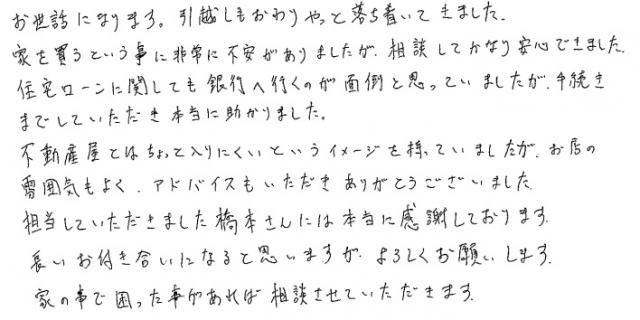 お世話になります。引越しもおわりやっと落ち着いてきました。
家を買うという事に非常に不安がありましたが、相談してかなり安心できました。
住宅ローンに関しても銀行へ行くのが面倒と思っていましたが、手続き
までしていただき本当に助かりました。
不動産屋とはちょっと入りにくいというイメージを持っていましたが、お店の
雰囲気もよく、アドバイスもいただきありがとうございました。
担当していただきました橋本さんには本当に感謝しております。
長いお付き合いになると思いますが、よろしくお願いします。
家の事で困った事があれば相談させていただきます。